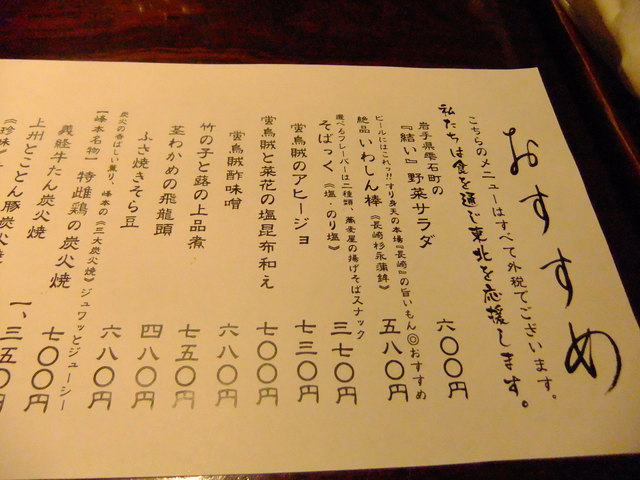 おすすめ
こちらのメニューはすべて外税でございます。
私たちは食を通じ東北を応援します。
岩手県雫石町の
『結い』野菜サラダ 六〇〇円
ビールにはこれッ!!すり身天の本場『長崎』の旨いもん◎おすすめ
絶品いわしん棒《長崎杉永蒲鉾》 五八〇円
選べるフレーバーは二種類、蕎麦屋の揚げそばスナック
そばっく《塩・のり塩》 三七〇円
蛍烏賊のアヒージョ 七三〇円
蛍烏賊と菜花の塩昆布和え 七〇〇円
蛍烏賊酢味噌 六八〇円
竹の子と蕗の上品煮 七五〇円
茎わかめの飛龍頭 四八〇円
ふさ焼きそら豆 六八〇円
炭火の香ばしい薫り、峰本の《三大炭火焼》ジュワッとジューシー
【峰本名物】特雌鶏の炭火焼 七〇〇円
義経牛たん炭火焼 一、三五〇円
上州とことん豚炭火焼
《珍味